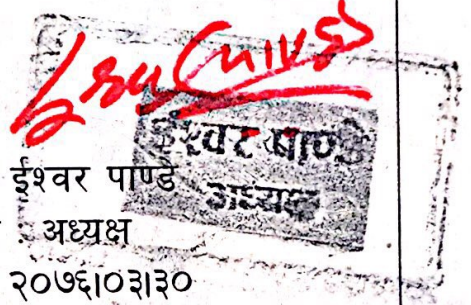 ईश्वर पाण्डे
अध्यक्ष
ईश्वर पाण्डे
अध्यक्ष
२०७६।०३।३०